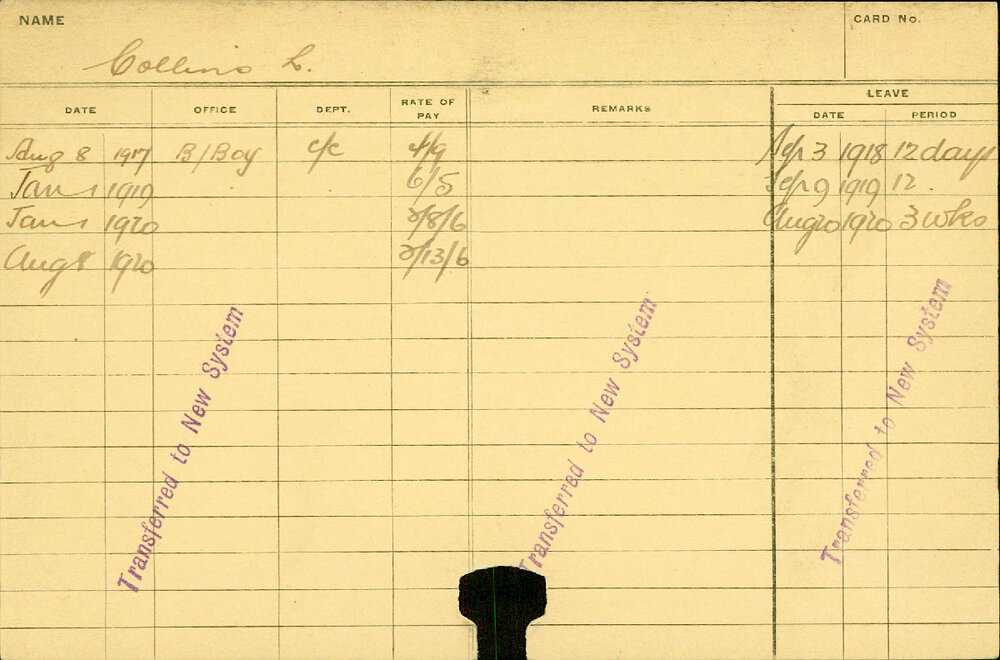 NAME
CARD No.
Collins L.
DATE OFFICE DEPT. RATE OF PAY REMARKS LEAVE
DATE PERIOD
Aug 8 1917 B/Boy c/c 4/9 Sep 3 1918 12 days
Jan 1 1919 6/5 Sep 9 1919 12.
Jan 1 1920 2/8/6 Aug 20 1920 3 wks
Aug 8 1920 2/13/6
Transferred to New System
Transferred to New System
Transferred to New System